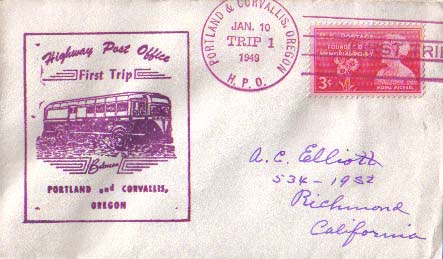 Highway Post Office
First Trip
Between
PORTLAND and CORVALLIS,
OREGON
PORTLAND & CORVALLIS, OREGON
JAN. 10
TRIP 1
1949
H.P.O.
FIRST TRIP
U.S. POSTAGE
FOUNDER OF
MEMORIAL POPPY
3¢
MOINA MICHAEL
A. C. Elliott
534-19 St
Richmond
California